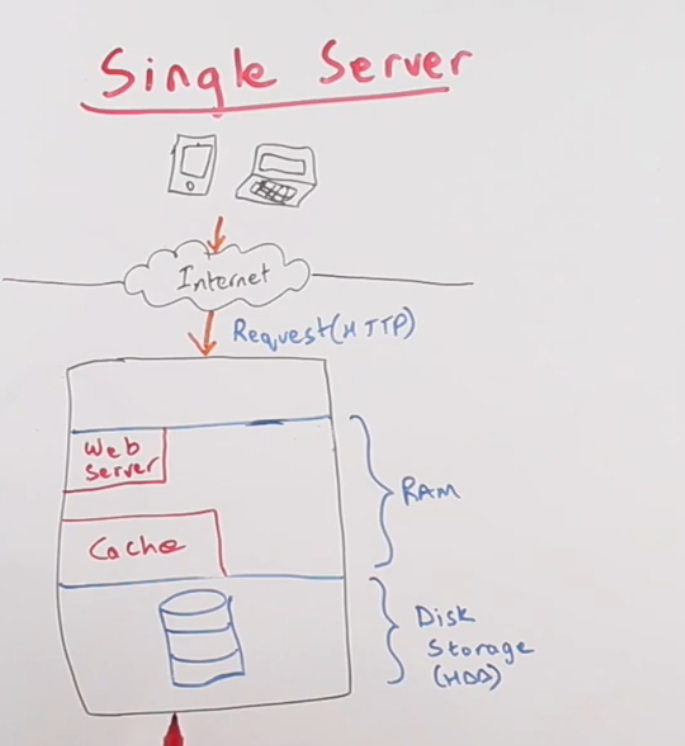 Single Server
Internet
Request(HTTP)
Web
Server
RAM
Cache
Disk
Storage
(HDD)